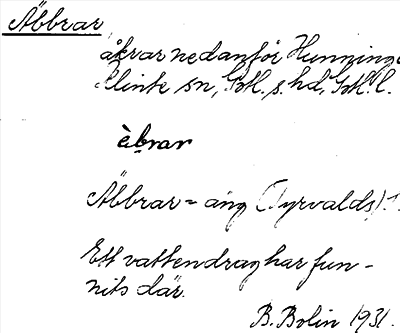 Äbbrar
åkrar nedanför Hunninge
Klinte sn, Gotl. s. hd, Gotl. l.
èbrar
Äbbrar = äng (Tyrvalds).
Ett vattendrag har fun-
nits där.
B. Bolin 1931.